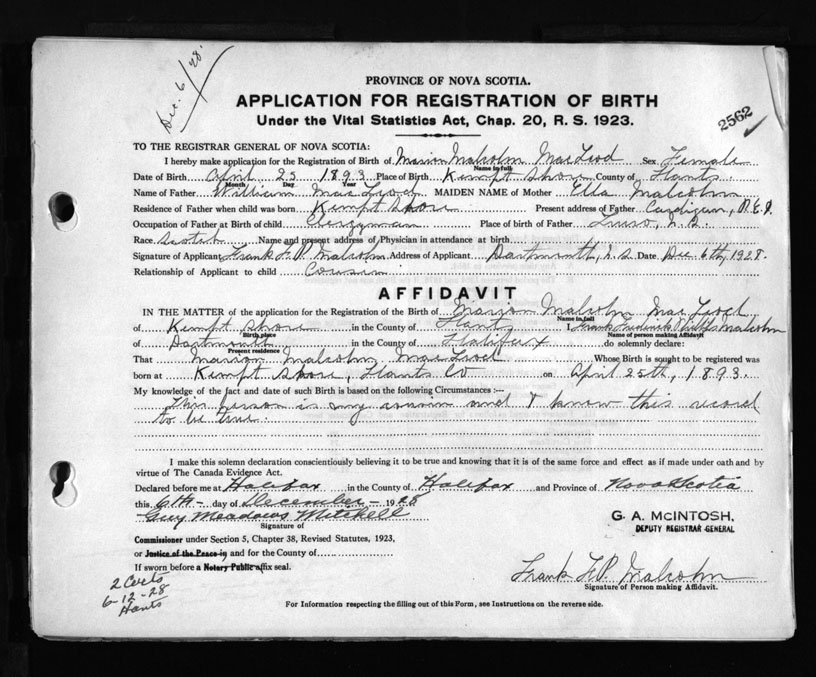 Dec. 6/28.
PROVINCE OF NOVA SCOTIA.
APPLICATION FOR REGISTRATION OF BIRTH
Under the Vital Statistics Act, Chap. 20, R. S. 1923.
2562
TO THE REGISTRAR GENERAL OF NOVA SCOTIA:
I hereby make application for the Registration of Birth of Marion Malcolm MacLeod Sex Female
Name in full
Date of Birth April 25 1893 Place of Birth Kempt Shore County of Hants
Month Day Year
Name of Father William MacLeod MAIDEN NAME of Mother Ella Malcolm
Residence of Father when child was born Kempt Shore Present address of Father Cardigan, P.E.I.
Occupation of Father at Birth of child Clergyman Place of birth of Father Truro, N.S.
Race Scotch Name and present address of Physician in attendance at birth
Signature of Applicant Frank F. P. Malcolm Address of Applicant Dartmouth, N.S. Date Dec. 6th, 1928.
Relationship of Applicant to child Cousin
AFFIDAVIT
IN THE MATTER of the application for the Registration of the Birth of Marion Malcolm MacLeod
Name in full
of Kempt Shore in the County of Hants I Frank Frederick Malcolm
Birth place Name of person making Affidavit
of Dartmouth in the County of Halifax do solemnly declare:
Present residence
That Marion Malcolm MacLeod Whose Birth is sought to be registered was
born at Kempt Shore, Hants Co on April 25th, 1893.
My knowledge of the fact and date of such Birth is based on the following Circumstances:—
This person is my cousin and I know this record
to be true.
I make this solemn declaration conscientiously believing it to be true and knowing that it is of the same force and effect as if made under oath and by
virtue of The Canada Evidence Act.
Declared before me at Halifax in the County of Halifax and Province of Nova Scotia
this 6th day of December 1928
Guy Meadows Mitchell
Signature of
G. A. McINTOSH,
DEPUTY REGISTRAR GENERAL
Commissioner under Section 5, Chapter 38, Revised Statutes, 1923,
or Justice of the Peace in and for the County of
If sworn before a Notary Public affix seal.
Frank F. P. Malcolm
Signature of Person making Affidavit.
2 Certs
6-12-28
Hants
For Information respecting the filling out of this Form, see Instructions on the reverse side.